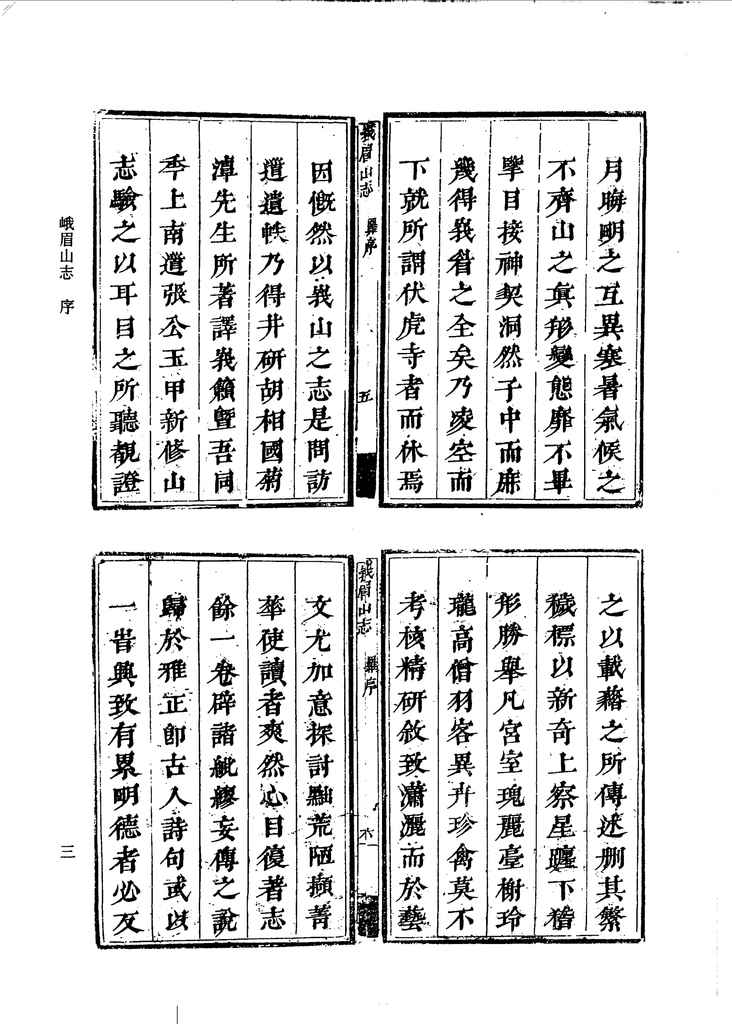 月晦明之互異寒暑氣候之
不齊山之眞形變態靡不畢
擥目接神契洞然于中而庶
幾得峩眉之全矣乃凌空而
下就所謂伏虎寺者而休焉
峨眉山志 序 五
因慨然以峩山之志是問訪
遺遺帙乃得井研胡相國菊
潭先生所著譯峩籟曁吾同
年上南遺張公玉甲新修山
志驗之以耳目之所聽覩證
之以載藉之所傳述刪其繁
穢標以新奇上察星躔下稽
形勝舉凡宮室瑰麗臺榭玲
瓏高僧羽客異卉珍禽莫不
考核精硏敘致瀟灑而於藝
峨眉山志 序
文尤加意探討黜荒陋擷菁
華使讀者爽然心目復著志
餘一卷辟諸紕繆妄傳之說
歸於雅正卽古人詩句或以
一峕興致有累明德者必反
峨眉山志 序
三